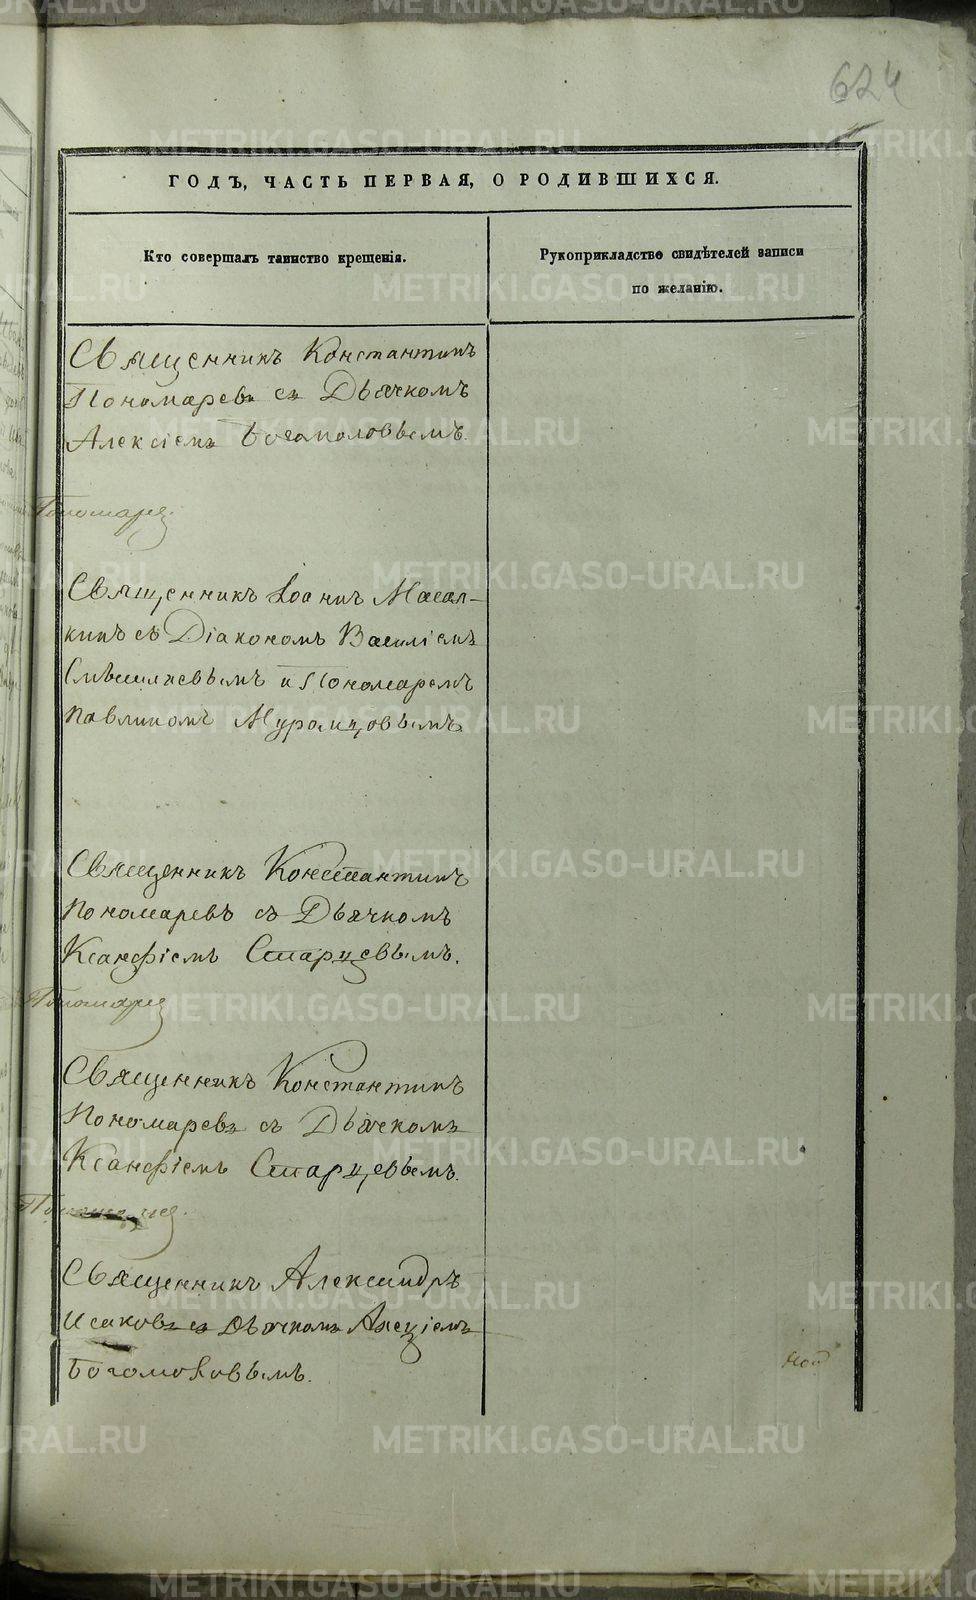 624
ГОДЪ, ЧАСТЬ ПЕРВАЯ, О РОДИВШИХСЯ.
Кто совершалъ таинство крещенія.
Рукоприкладство свидѣтелей записи
по желанію.
Священникъ Константинъ
Пономаревъ съ Дьячкомъ
Алексіемъ Богомоловымъ.
Священникъ Іоаннъ Масал-
кинъ съ Діакономъ Василіемъ
и Пономаремъ
Павлиномъ Муромцовымъ.
Священникъ Константинъ
Пономаревъ съ Дьячкомъ
Ксанфіемъ Старцевымъ.
Священникъ Константинъ
Пономаревъ съ Дьячкомъ
Ксанфіемъ Старцевымъ.
Священникъ Александръ
Исаковъ съ Дьячкомъ
Богомоловымъ.
METRIKI.GASO-URAL.RU